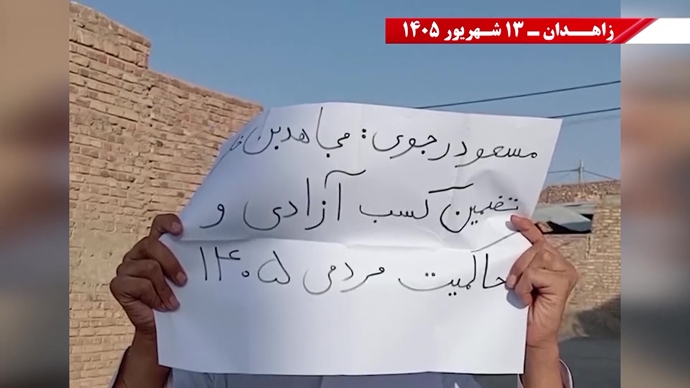 زاهـدان ـ ۱۳ شهریور ۱۴۰۵
مسعود رجوی: مجاهدین
تضمین کسب آزادی و
حاکمیت مردمی ۱۴۰۵